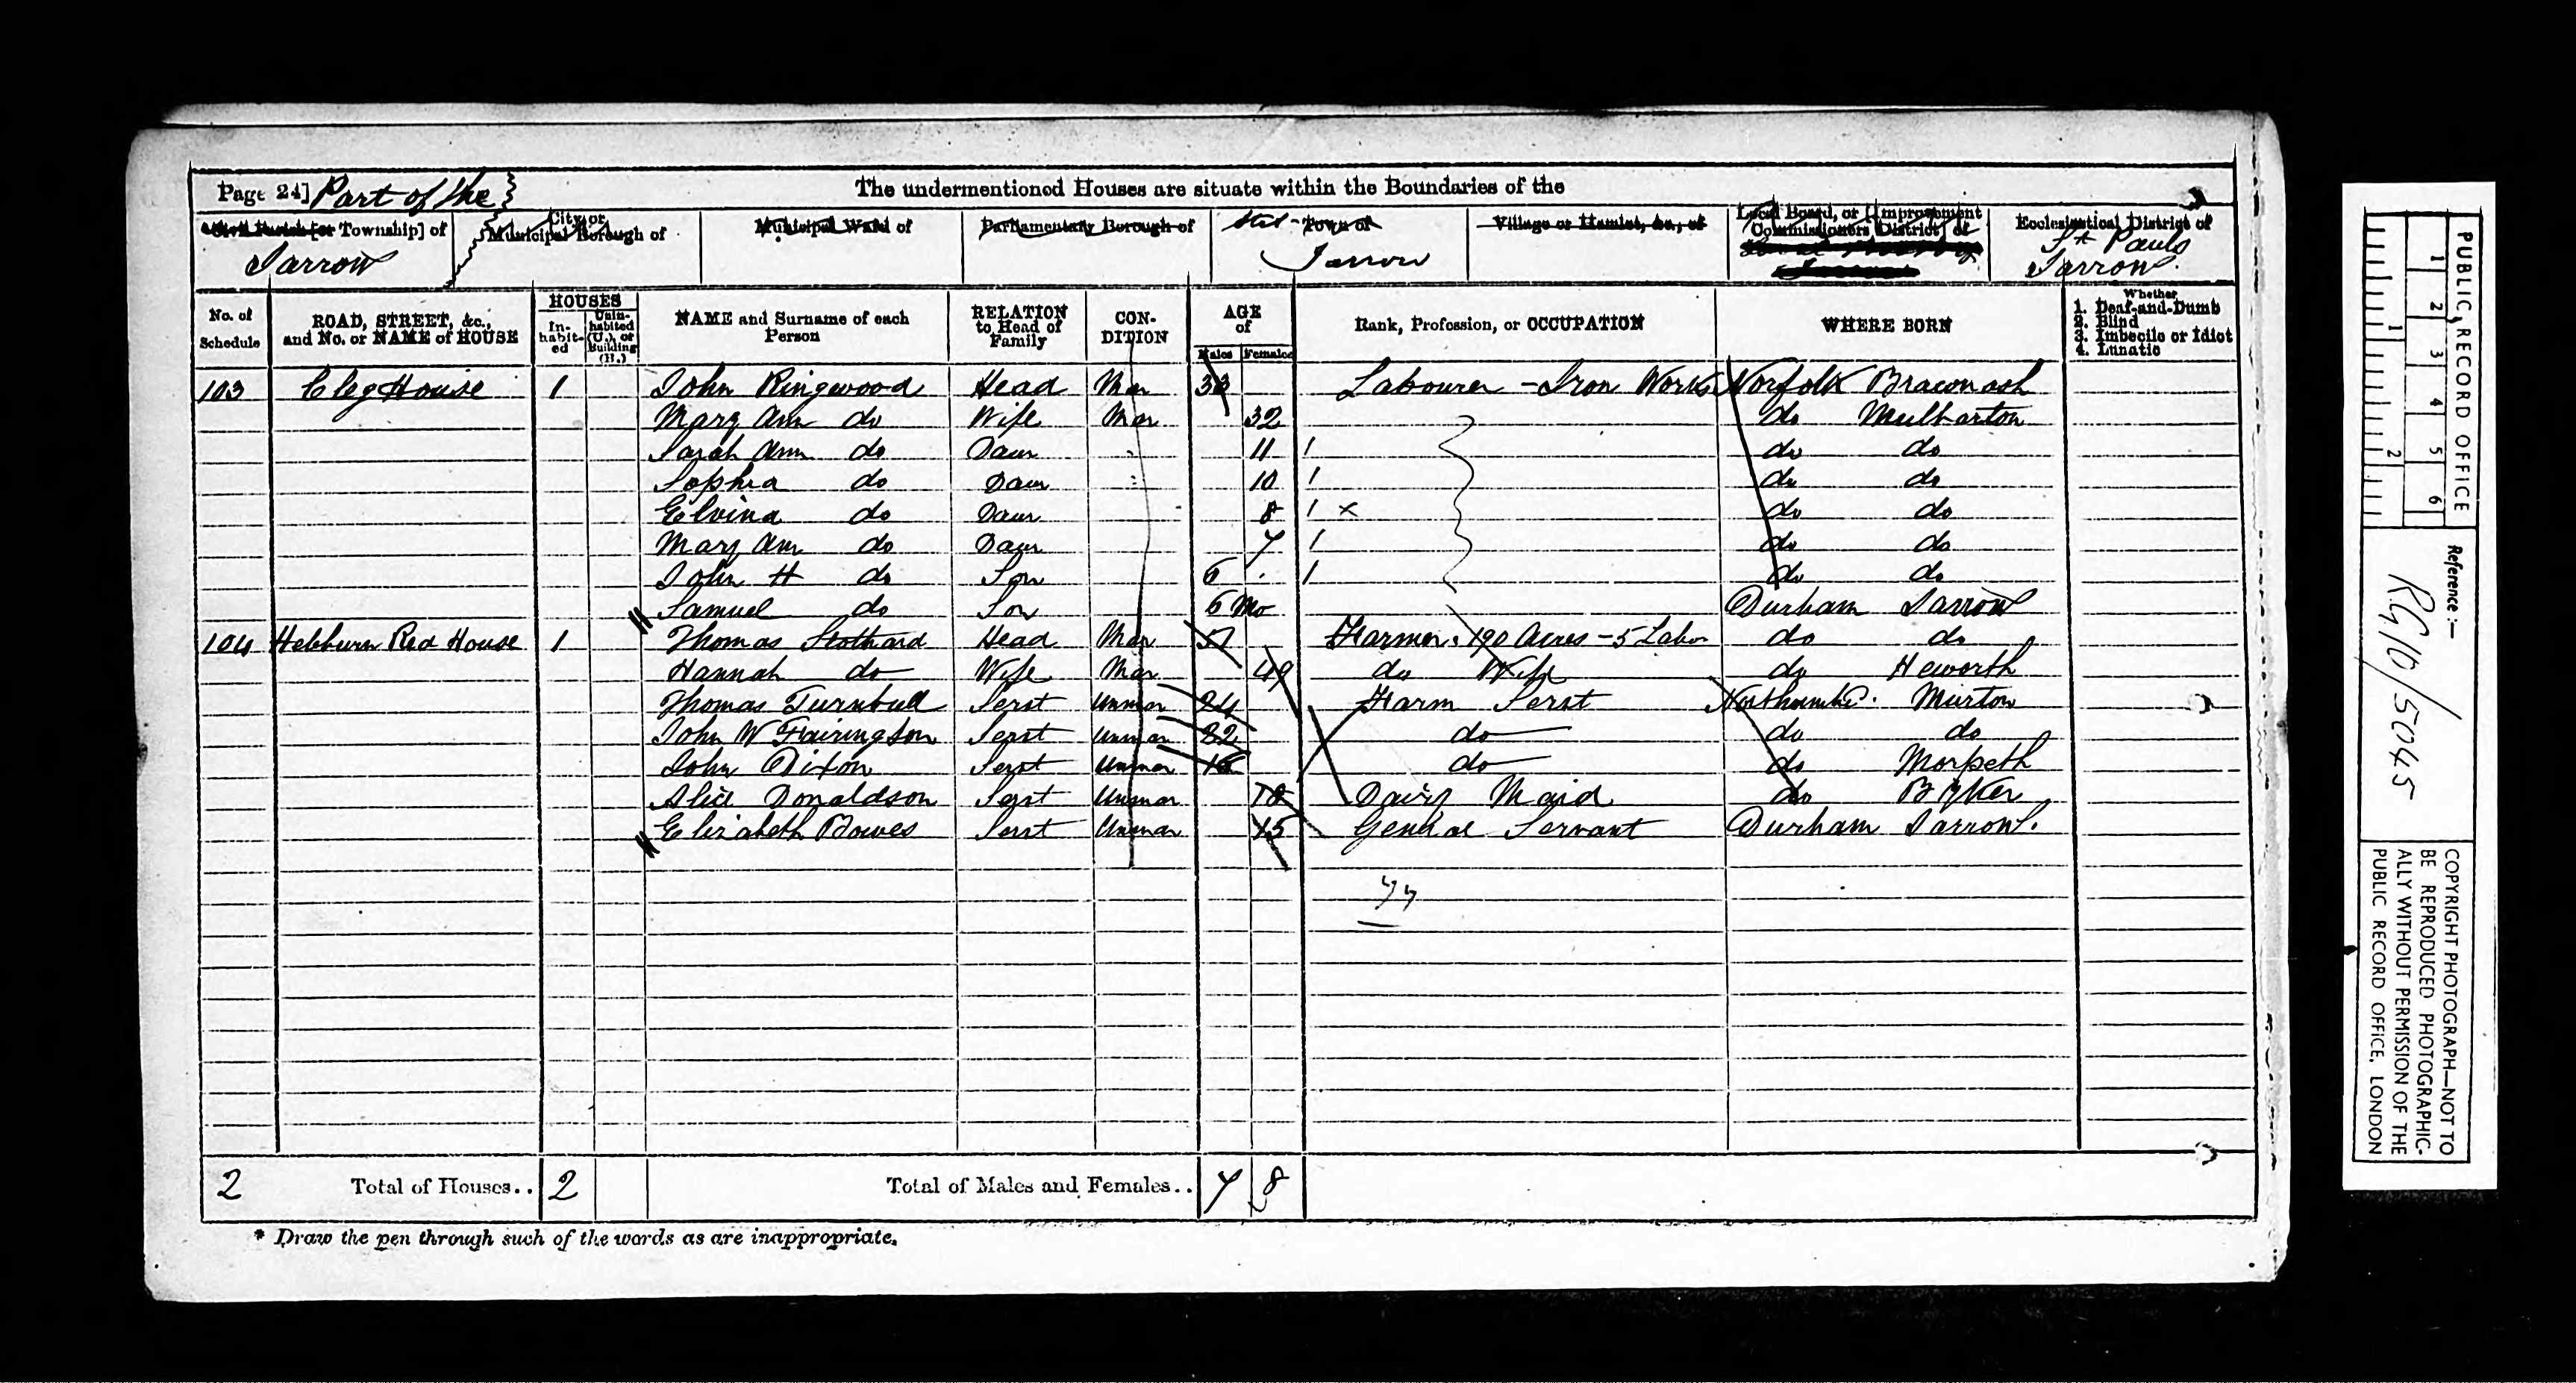 Page 24] Part of the
The undermentioned Houses are situate within the Boundaries of the
Civil Parish [or Township] of
Jarrow
City or Municipal Borough of
Municipal Ward of
Parliamentary Borough of
Town of
Jarrow
Village or Hamlet, &c., of
Local Board, or [Improvement Commissioners District] of
Ecclesiastical District of
St Pauls
Jarrow
No. of Schedule
ROAD, STREET, &c., and No. or NAME of HOUSE
HOUSES
In-habit-ed
Unin-habited (U.), or Building (B.)
NAME and Surname of each Person
RELATION to Head of Family
CON-DITION
AGE of
Males Females
Rank, Profession, or OCCUPATION
WHERE BORN
Whether
1. Deaf-and-Dumb
2. Blind
3. Imbecile or Idiot
4. Lunatic
103 Cleg House 1 John Ringwood Head Mar 33 Labourer - Iron Works Norfolk Braconash
Mary Ann do Wife Mar 32 do Mulbarton
Sarah Ann do Daur 11 do do
Sophia do Daur 10 do do
Elvina do Daur 8 do do
Mary Ann do Daur 7 do do
John H do Son 6 do do
Samuel do Son 6 Mo Durham Jarrow
104 Hebburn Red House 1 Thomas Stothard Head Mar 51 Farmer. 190 Acres - 5 Labor do do
Hannah do Wife Mar 49 do Wife do Heworth
Thomas Turnbull Servt Unmar 24 Farm Servt Northumbd. Murton
John W Fairingson Servt Unmar 22 do do do
John Dixon Servt Unmar 16 do do Morpeth
Alice Donaldson Servt Unmar 18 Dairy Maid do Byker
Elizabeth Bowes Servt Unmar 15 General Servant Durham Jarrow.
77
2 Total of Houses.. 2 Total of Males and Females.. 7 8
* Draw the pen through such of the words as are inappropriate.
PUBLIC RECORD OFFICE
1 2 3 4 5 6
1 2
Reference:-
RG 10/5045
COPYRIGHT PHOTOGRAPH—NOT TO
BE REPRODUCED PHOTOGRAPHIC-
ALLY WITHOUT PERMISSION OF THE
PUBLIC RECORD OFFICE, LONDON